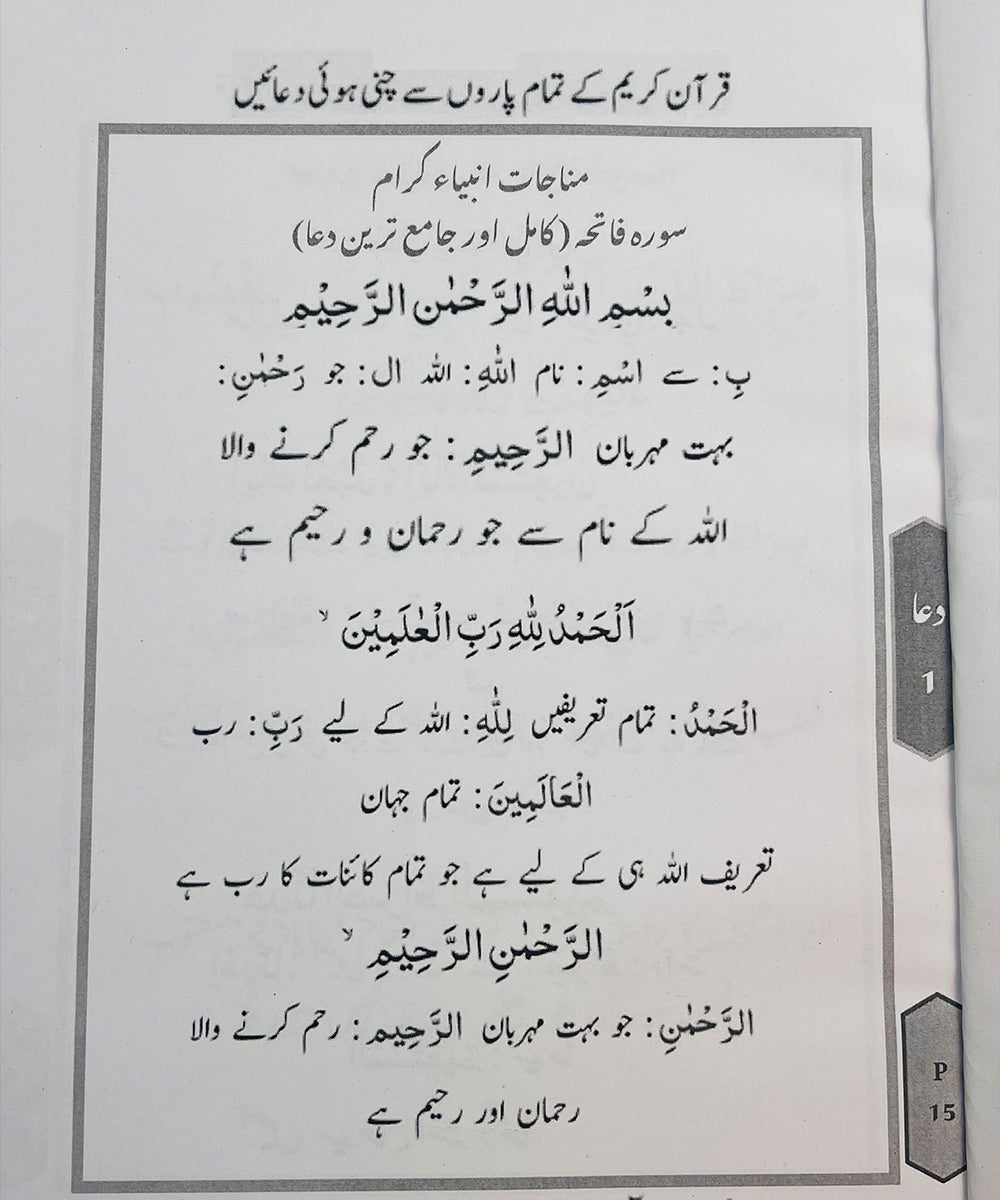 قرآن کریم کے تمام پاروں سے چنی ہوئی دعائیں
مناجات انبیاء کرام
سورہ فاتحہ (کامل اور جامع ترین دعا)
بِسْمِ اللّٰهِ الرَّحْمٰنِ الرَّحِیْمِ
بِ: سے اسْمِ: نام اللّٰهِ: اللہ ال: جو رَحْمٰنِ:
بہت مہربان الرَّحِيمِ: جو رحم کرنے والا
اللہ کے نام سے جو رحمان و رحیم ہے
اَلْحَمْدُ لِلّٰهِ رَبِّ الْعٰلَمِیْنَ ۙ
الْحَمْدُ: تمام تعریفیں لِلّٰهِ: اللہ کے لیے رَبِّ: رب
الْعَالَمِينَ: تمام جہان
تعریف اللہ ہی کے لیے ہے جو تمام کائنات کا رب ہے
الرَّحْمٰنِ الرَّحِیْمِ ۙ
الرَّحْمٰنِ: جو بہت مہربان الرَّحِيمِ: رحم کرنے والا
رحمان اور رحیم ہے
دعا
1
P
15